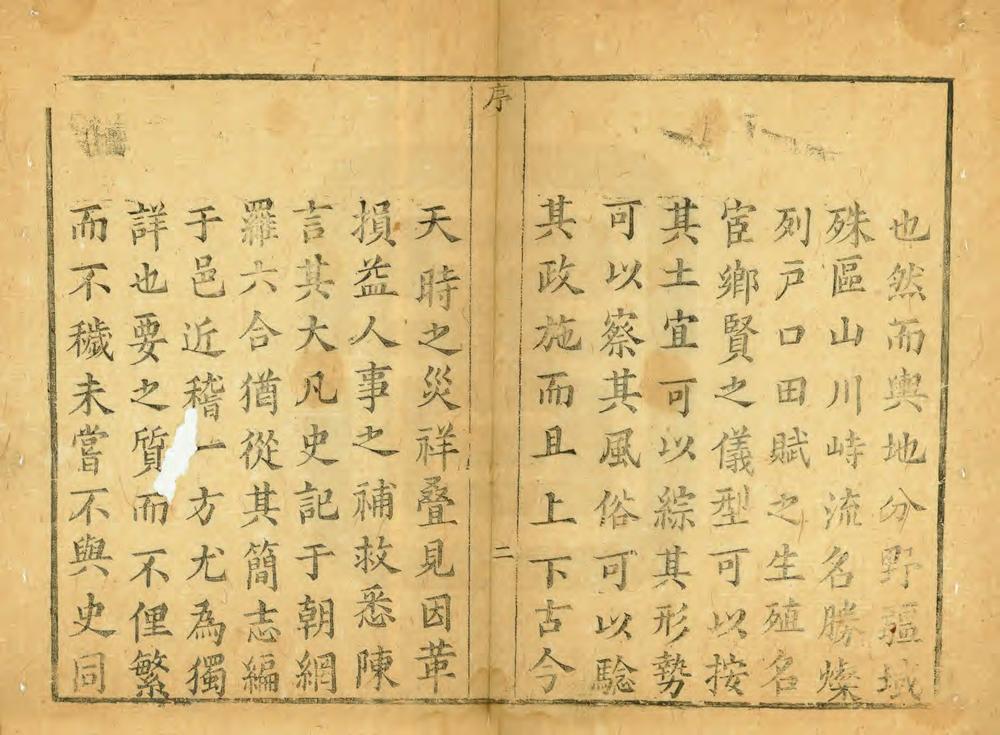 也然而輿地分野疆域
殊區山川峙流名勝燦
列戶口田賦之生殖名
宦鄉賢之儀型可以按
其土宜可以綜其形勢
可以察其風俗可以騐
其政施而且上下古今
序
二
天時之災祥疊見因革
損益人事之補救悉陳
言其大凡史記于朝網
羅六合猶從其簡志編
于邑近稽一方尤為獨
詳也要之質而不俚繁
而不穢未嘗不與史同